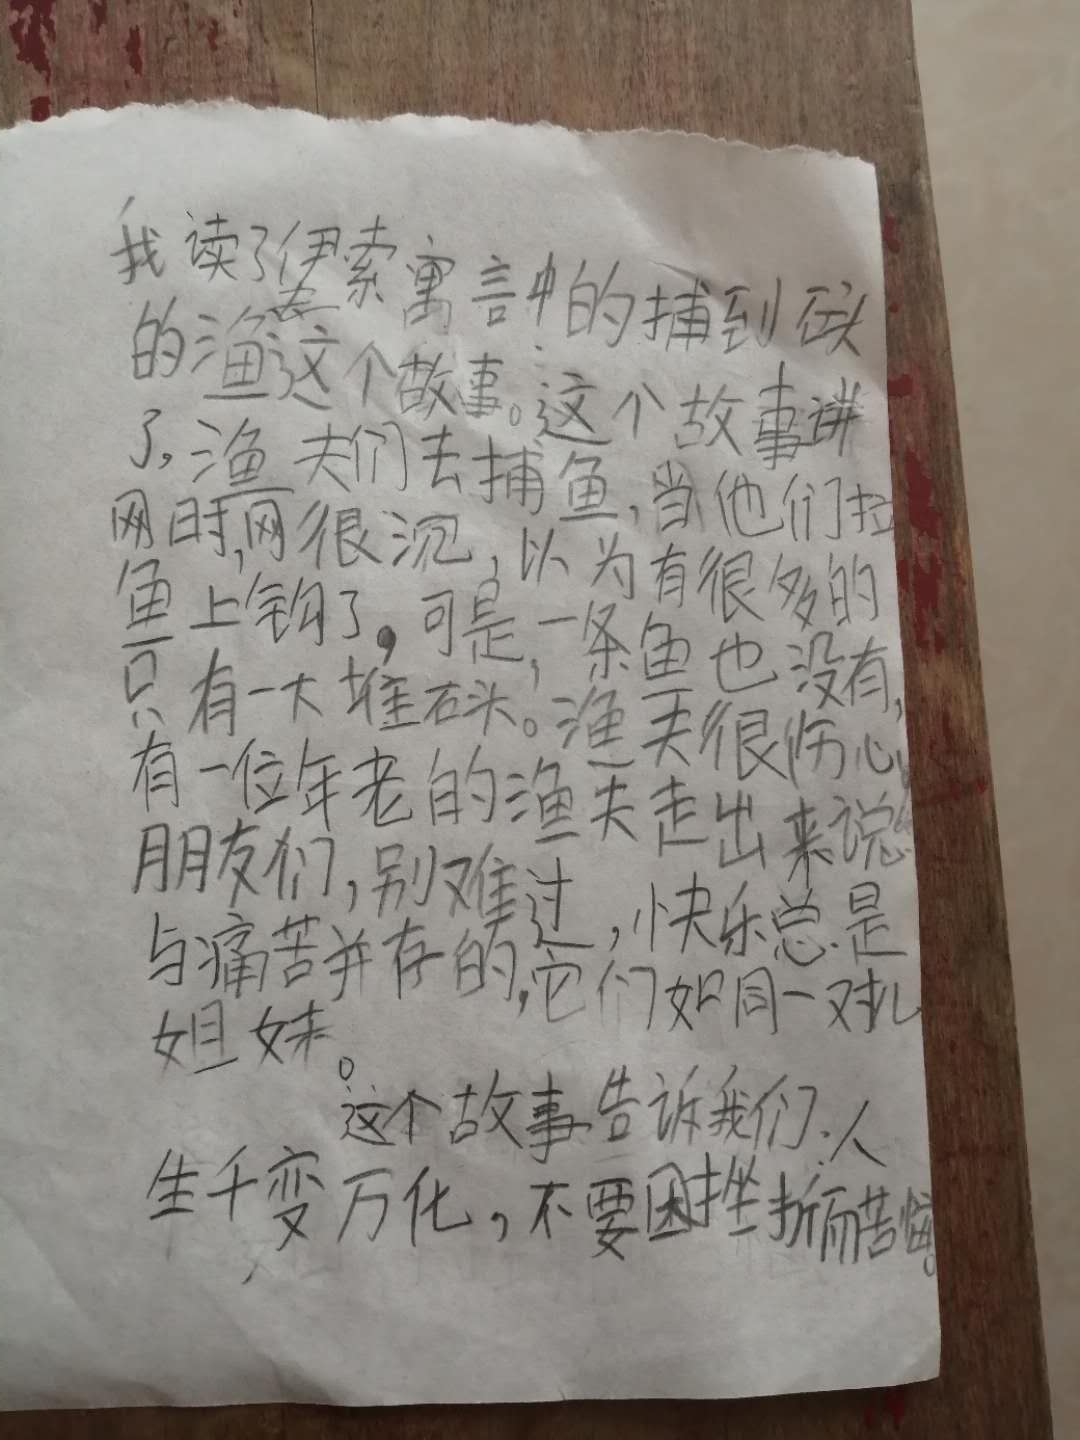 我读了伊索寓言中的捕到石头
的渔夫这个故事。这个故事讲
了,渔夫们去捕鱼,当他们拉
网时,网很沉,以为有很多的
鱼上钩了,可是,一条鱼也没有,
只有一大堆石头。渔夫很伤心,
有一位年老的渔夫走出来说:
朋友们,别难过,快乐总是
与痛苦并存的,它们如同一对儿
姐妹。
这个故事告诉我们,人
生千变万化,不要因挫折而苦恼。